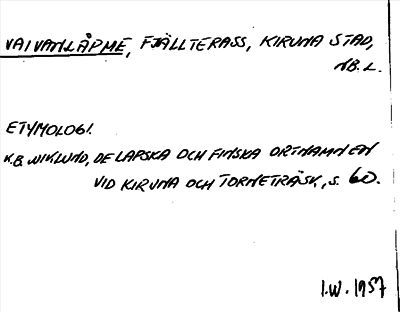 VAIVANLÅPME, FJÄLLTERASS, KIRUNA STAD,
NB.L.
ETYMOLOGI.
K.B. WIKLUND, DE LAPSKA OCH FINSKA ORTNAMNEN
VID KIRUNA OCH TORNETRÄSK, S. 60.
I.W. 1957